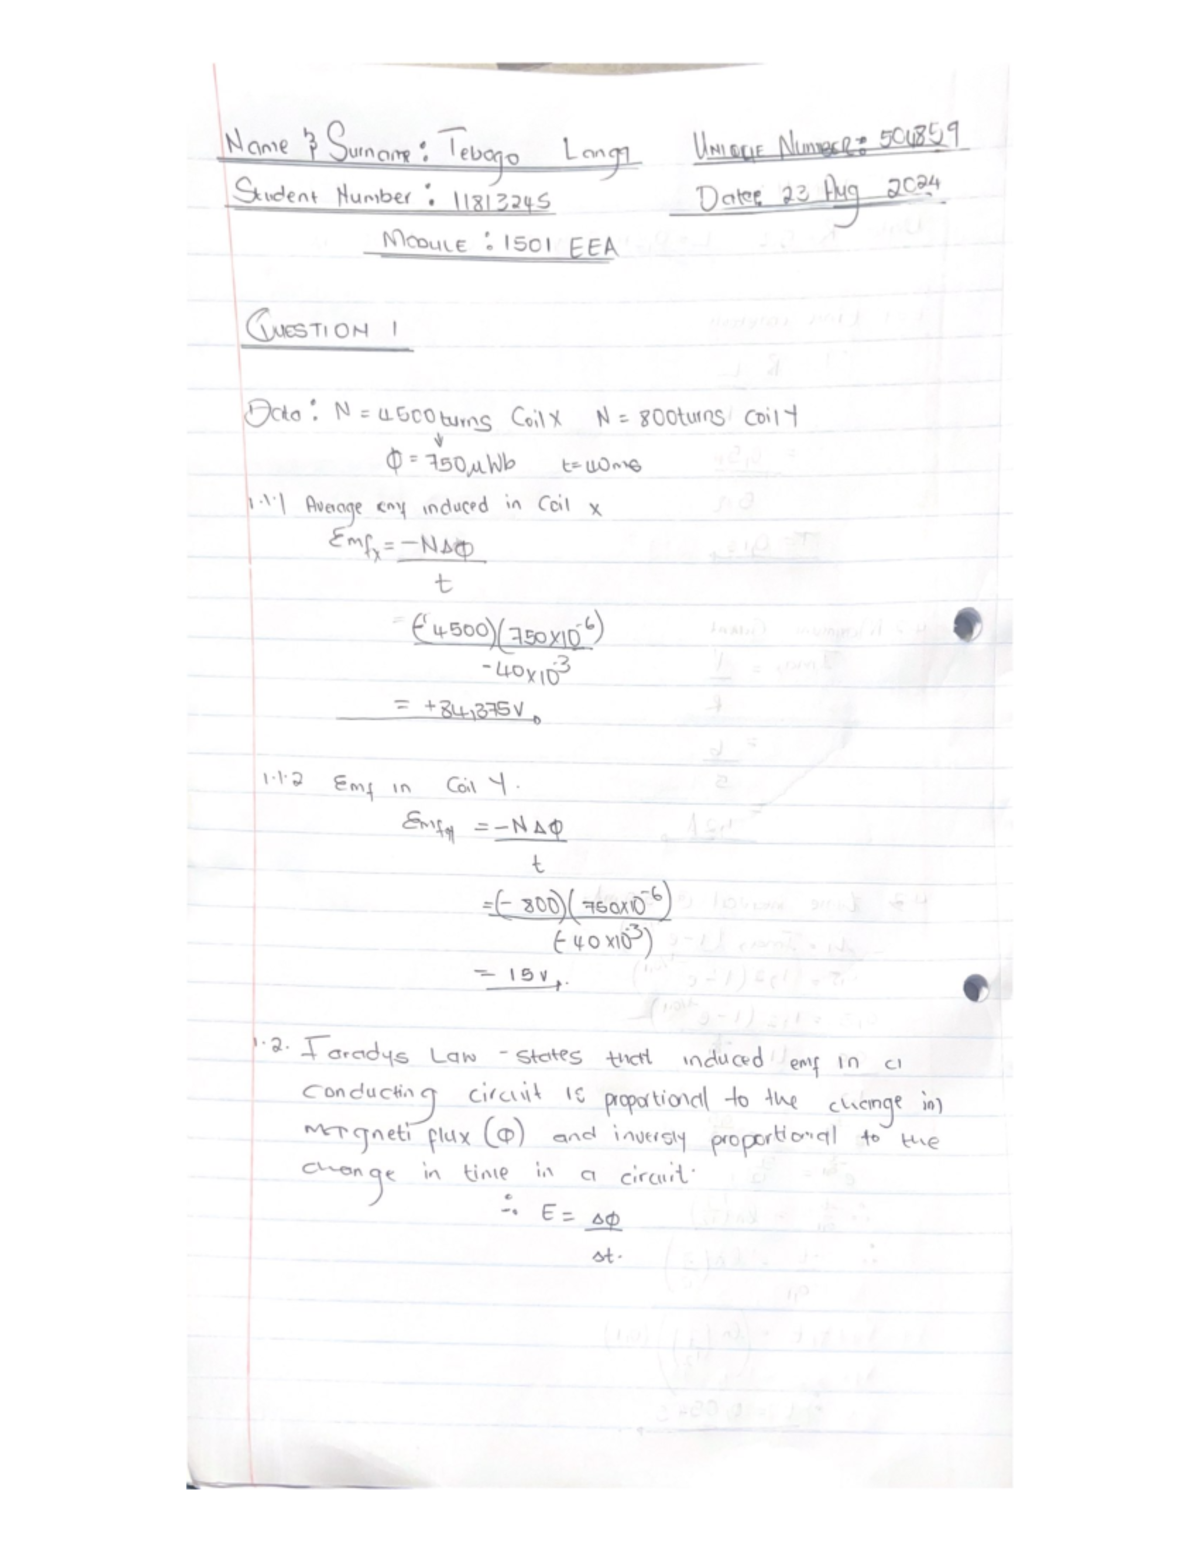 Name & Surname: Tebogo Langa Unique Number: 504859
Student Number: 11813245 Date: 23 Aug 2024
Module: 1501 EEA
QUESTION 1
Data: N = 4500 turns Coil X N = 800 turns Coil Y
Φ = 750μWb t=40ms
1.1.1 Average emf induced in Coil x
Emfx = -NΔΦ
t
= (-4500)(750x10^-6)
-40x10^-3
= +84,375V
1.1.2 Emf in Coil Y.
Emfy = -NΔΦ
t
= (-800)(750x10^-6)
(-40x10^-3)
= 15V
1.2. Faradys Law - states that induced emf in a
conducting circuit is proportional to the change in
magneti flux (Φ) and inversly proportional to the
change in time in a circuit.
∴ E = ΔΦ
Δt.